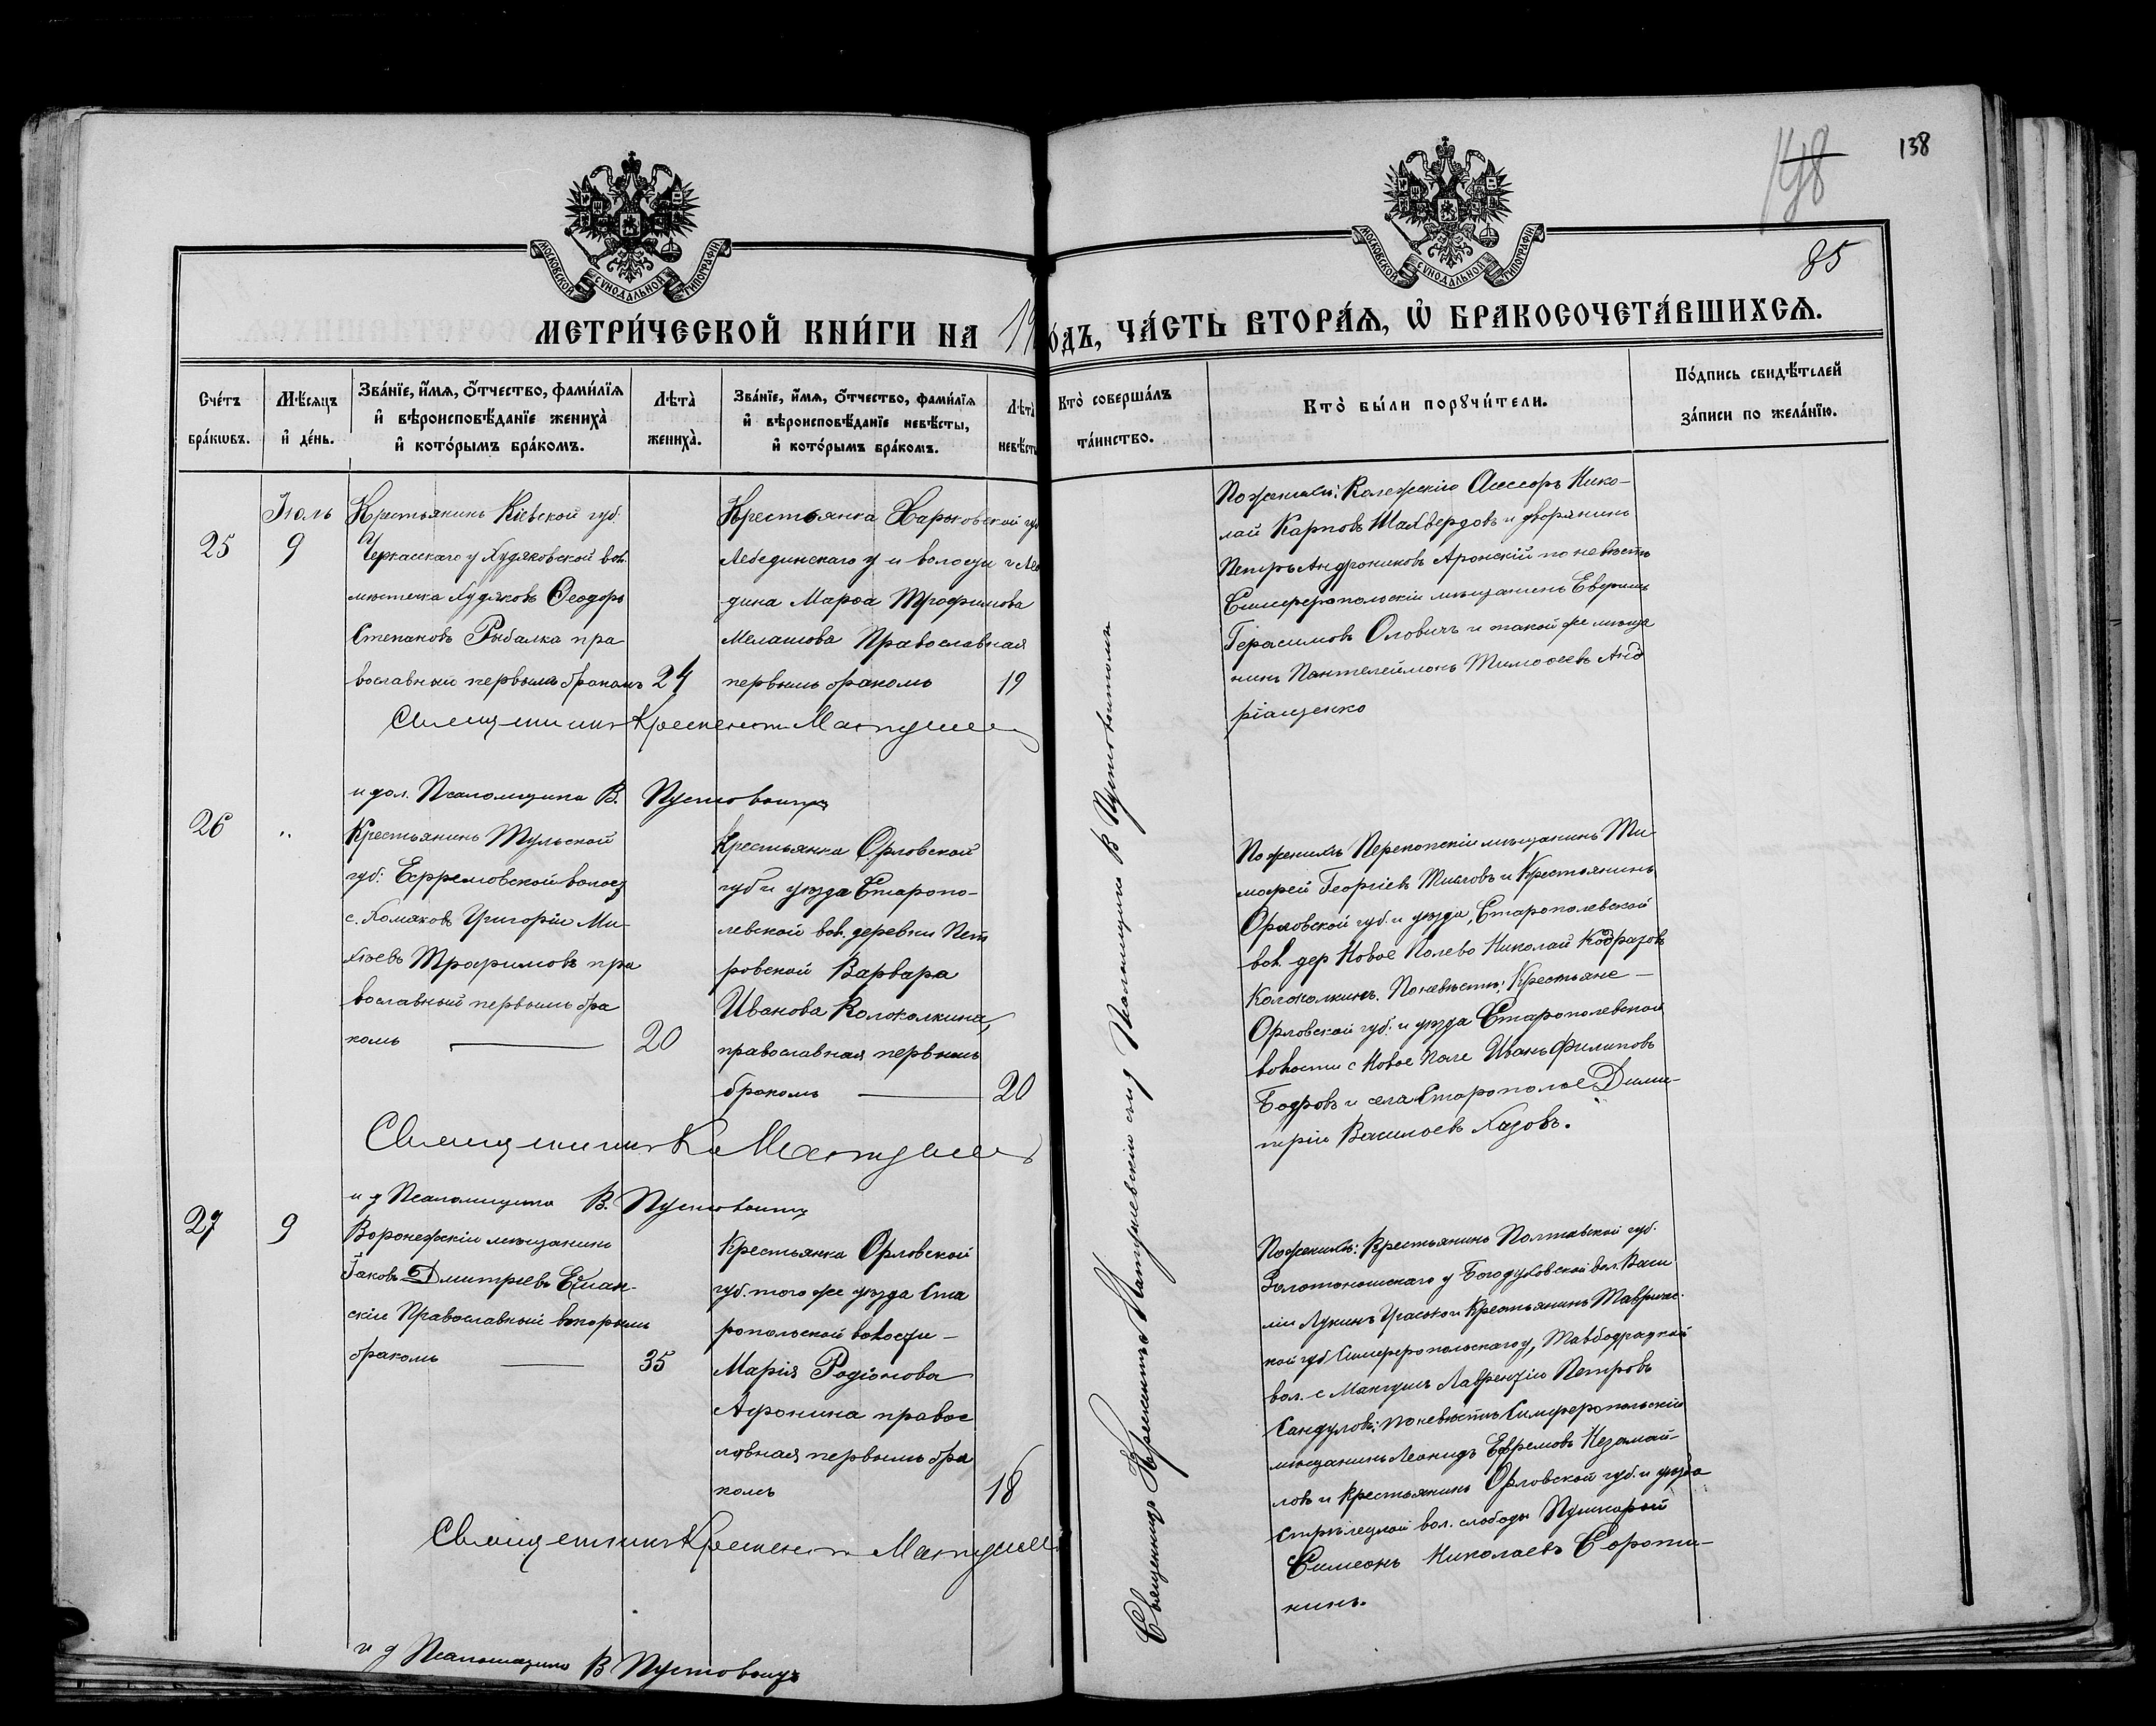 138
148
85
МОСКОВСКОЙ СУНОДАЛЬНОЙ ТИПОГРАФІИ
МОСКОВСКОЙ СУНОДАЛЬНОЙ ТИПОГРАФІИ
МЕТРИ́ЧЕСКОЙ КНИ́ГИ НА 19
О́ДЪ, ЧА́СТЬ ВТОРА́Ѧ, Ѡ҆ БРАКОСОЧЕТА́ВШИХСѦ.
Сче́тъ бра́кѡвъ.
Мѣ́сѧцъ и҆ де́нь.
Зва́нїе, и҆́мѧ, ѻ҆́тчество, фами́лїѧ
и҆ вѣроисповѣ́данїе жениха̀
и҆ кото́рымъ бра́комъ.
Лѣ́та̀ жениха̀.
Зва́нїе, и҆́мѧ, ѻ҆́тчество, фами́лїѧ
и҆ вѣроисповѣ́данїе невѣ́сты,
и҆ кото́рымъ бра́комъ.
Лѣ́та̀ невѣ́сты
Кто̀ соверша́лъ та́инство.
Кто̀ бы́ли порꙋчи́тели.
По́дпись свидѣ́телей за́писи по жела́нїю.
25
Іюль
9
Крестьянинъ Кіевской губ.
Черкасскаго у Худяковской вол.
мѣстечка Худяковъ Ѳеодоръ
Степановъ Рыбалка пра
вославный первымъ бракомъ
24
Крестьянка Харьковской гу
Лебединскаго у и волости г Лебе
дина Марѳа Трофимова
Мелашова Православная
первымъ бракомъ
19
По женихѣ: Колежскій Ассесоръ Нико-
лай Карповъ Шахвердовъ и дворянинъ
Петръ Андрониковъ Аронскій по невѣстѣ
Симферопольскій мѣщанинъ Евфимъ
Герасимовъ Оловичъ и такой же мѣща
нинъ Пантелеймонъ Тимоѳеевъ Анд
ріащенко
Священникъ Крескентъ Матушев
и дол. Псаломщика В. Пустовоитъ
26
"
Крестьянинъ Тульской
губ. Ефремовской волос
с. Хомяковъ Григорій Ми-
хѣевъ Трафимовъ пра
вославный первымъ бра
комъ
20
Крестьянка Орловской
губ и уѣзда Старопо-
левской вол. деревни Пет
ровской Варвара
Иванова Колоколкина,
православная первымъ
бракомъ
20
По женихѣ Перекопскій мѣщанинъ Ти-
мофей Георгіевъ и Крестьянинъ
Орловской губ. и уѣзда, Старополевской
вол. дер Новое Полево Николай
Колоколкинъ. По невѣстѣ: Крестьяне
Орловской губ. и уѣзда Старополевской
волости с Новое Поле Иванъ Филиповъ
Бодровъ и села Старополое Дими-
трій Васильевъ Хазовъ.
Священникъ К. Матушев
и д Псаломщика В. Пустовоитъ
27
9
Воронежскій мѣщанинъ
Іаковъ Дмитріевъ Елан-
скій Православный вторымъ
бракомъ
35
Крестьянка Орловской
губ. того же уѣзда Ста
ропольской волости
Марія Родіонова
Афонина правос
лавная первымъ бра
комъ
18
По женихѣ: Крестьянинъ Полтавской губ.
Золотоношскаго у Богодуховской вол. Васи
лій Лукинъ и Крестьянинъ Тавричес-
кой губ Симферопольскаго у,
вол. с Мангушъ Лаврентій Петровъ
Сандуловъ; по невѣстѣ Симферопольскій
мѣщанинъ Леонидъ Ефремовъ Незамай-
ловъ и крестьянинъ Орловской губ. и уѣзда
Стрѣлецкой вол. слободы Пушкарной
Симеонъ Николаевъ Сороти-
нинъ.
Священникъ Крескентъ Матушев
и д Псаломщика В Пустовоитъ
Священникъ Крескентъ Матушевскій и д Псаломщика В Пустовоитъ